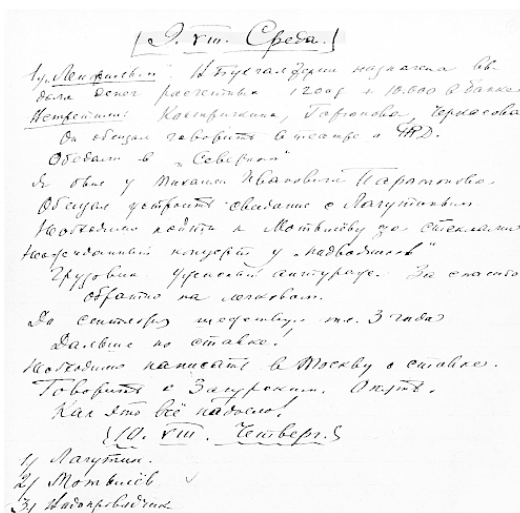 9. VIII. Среда.
1) „Ленфильм". В Бухгалтерии назначена вы-
дача денег расчетных 1200 + 10.000 в банке
Встретили: Кастричкина, Горюнова, Черкасова
Он обещал говорить в театре о
Обедали в „Северном"
Я был у Михаила Ивановича Парамонова.
Обещал устроить свидание с Лагутиным
Необходимо пойти к Мотвилёву за стеклами
Неожиданный концерт у „подводников"
Грузовик. Ужасный антураж. За спасибо
обратно на легковом.
До сентября 3 года
Дальше по ставке!
Необходимо написать в Москву о ставке.
Говорить с Загурским. Опять.
Как это всё надоело!
10. VIII. Четверг.
1) Лагутин.
2) Мотвилёв
3) Водопроводчик